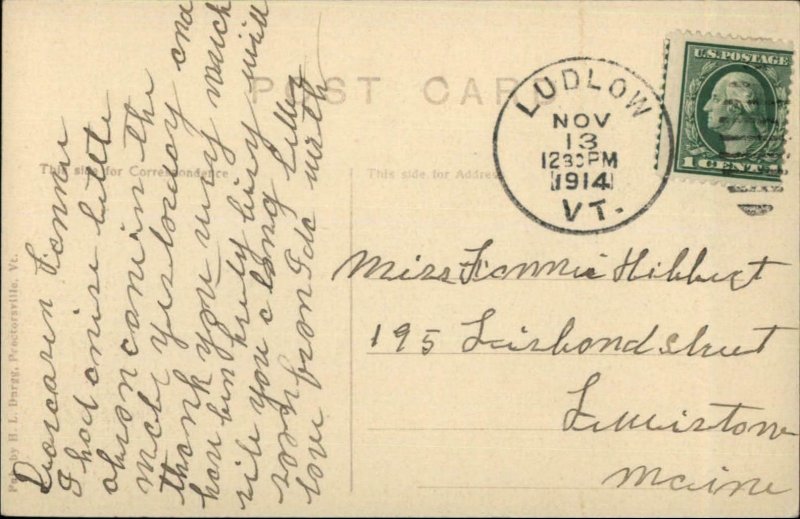 POST CARD
This side for Correspondence
This side for Address
Pub. by H. L. Dargg, Proctorsville, Vt.
LUDLOW
NOV
13
1230PM
1914
VT.
U.S. POSTAGE
1 CENT 1
Miss Fannie Hibbert
195 Lisbond Street
Lewistown
Maine
Dear Fannie
I had a nice little
came in the
male yesterday and
thank you very much
have bin busy will
rite you a long letter
soon from Ida with
love